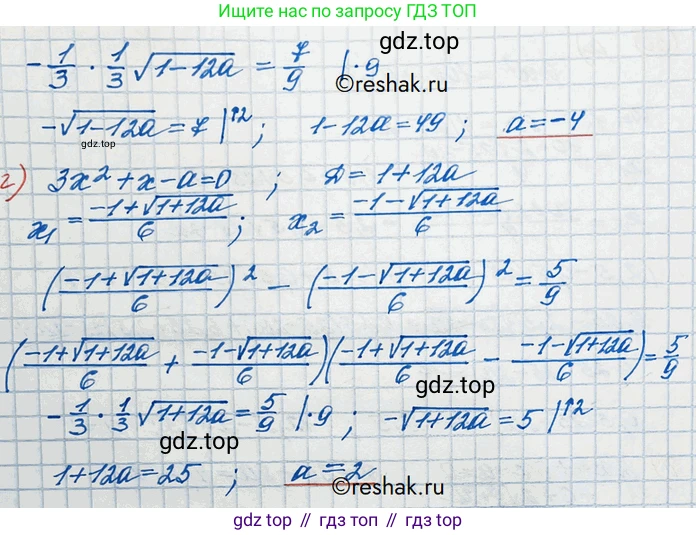 Ищите нас по запросу ГДЗ ТОП
-1/3 · 1/3 √(1-12a) = 7/9 | ·9
gdz.top
©reshak.ru
-√(1-12a) = 7 |↑2 ; 1-12a = 49 ; a = -4
gdz.top
г) 3x² + x - a = 0 ; D = 1 + 12a
x₁ = (-1+√(1+12a))/6 ; x₂ = (-1-√(1+12a))/6
gdz.top
((-1+√(1+12a))/6)² - ((-1-√(1+12a))/6)² = 5/9
gdz.top
((-1+√(1+12a))/6 + (-1-√(1+12a))/6)((-1+√(1+12a))/6 - (-1-√(1+12a))/6) = 5/9
gdz.top
-1/3 · 1/3 √(1+12a) = 5/9 | ·9 ; -√(1+12a) = 5 |↑2
gdz.top
1+12a = 25 ; a = 2
©reshak.ru
gdz.top // гдз.топ // gdz.top // гдз.топ // gdz.top